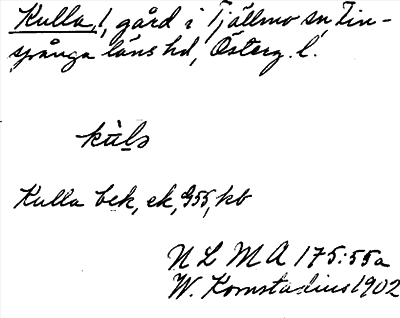 Kulla!, gård i Tjällmo sn, Fin-
spånga läns hd, Österg. l.
Kulla bek, ek, G55, kb
N L M A 175:55a
W. Kornstadius 1902